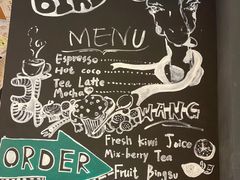 MENU
Espresso
Hot coco
Tea Latte
Mocha
WANG
Fresh Kiwi Joice
Mix-berry Tea
Fruit Bingsu
ORDER